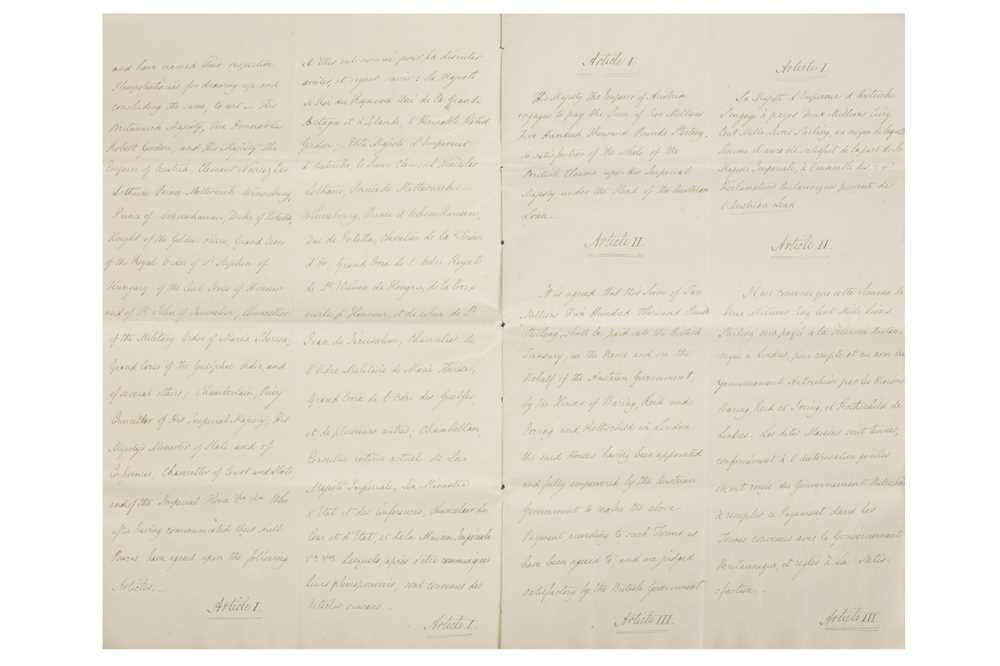 and have named their respective
Plenipotentiaries for drawing up and
concluding the same, to wit – His
Britannick Majesty, the Honorable
Robert Gordon, and His Majesty the
Emperor of Austria, Clement Wences Les
Lothaire Prince Metternich Winneburg,
Prince of Ochsenhausen, Duke of Portella,
Knight of the Golden Fleece, Grand Cross
of the Royal Order of St Stephen of
Hungary of the Civil Cross of Honour
and of St John of Jerusalem, Chancellor
of the Military Order of Maria Theresa,
Grand Cross of the Guelphic Order and
of several others; Chamberlain, Privy
Councillor of His Imperial Majesty, His
Majesty's Minister of State and of
Conferences, Chancellor of Court and State
and of the Imperial House &c &c Who
after having communicated their full
Powers, have agreed upon the following
Articles. –
Article I.
et Elles ont nommé pour la discuter
arrêter, et signer savoir: Sa Majesté
le Roi du Royaume Uni de la Grande
Bretagne et d'Irlande, l'Honorable Robert
Gordon, Et Sa Majesté l'Empereur
d'Autriche, le Sieur Clement Wenceslas
Lothaire, Prince de Metternich –
Winnebourg, Prince d'Ochsenhausen,
Duc de Portella, Chevalier de la Toison
d'Or, Grand Croix de l'Ordre Royale
de St Etienne de Hongrie, de la Croix
civile d'Honneur, et de celui de St
Jean de Jérusalem, Chancelier de
l'Ordre Militaire de Marie Thérèse,
Grand Croix de l'Ordre des Guelfes
et de plusieurs autres; Chambellan,
Conseiller intime actuel de Sa
Majesté Impériale, Son Ministre
d'Etat et des Conférences, Chancelier de
Cour et d'Etat, et de la Maison Impériale
&c &c. Lesquels, après s'être communiqués
leurs pleinspouvoirs, sont convenus des
Articles suivans. –
Article I.
Article I
His Majesty the Emperor of Austria
engages to pay the Sum of Two Millions
Five Hundred Thousand Pounds Sterling,
in satisfaction of the whole of the
British Claims upon His Imperial
Majesty under the Head of the Austrian
Loan.
Article II.
It is agreed that this Sum of Two
Millions Five Hundred Thousand Pounds
Sterling, shall be paid into the British
Treasury in the Name and on the
Behalf of the Austrian Government,
by the Houses of Baring, Reid and
Irving and Rothschild in London
the said Houses having been appointed
and fully empowered by the Austrian
Government to make the above
Payment according to such Terms as
have been agreed to, and are judged
satisfactory by the British Government
Article III.
Article I
Sa Majesté l'Empereur d'Autriche
s'engage à payer Deux Millions Cinq
Cent Mille Livres Sterling, au moyen de laquelle
Somme il aura été satisfait de la part de Sa
Majesté Impériale, à l'ensemble des
Réclamations britanniques provenant de
l'Austrian Loan.
Article II.
Il est convenu que cette Somme de
Deux Millions Cinq Cent Mille Livres
Sterling sera payée à la Trésorerie britan-
nique à Londres, pour compte et au nom du
Gouvernement Autrichien par les Maisons
Baring, Reid et Irving, et Rothschild de
Londres. Les dites Maisons sont tenues,
conformément à l'autorisation qu'elles
en ont reçue du Gouvernement Autrichien
à remplir ce Payement dans les
Termes convenus avec le Gouvernement
Britannique, et réglés à Sa Satis-
-faction. –
Article III.